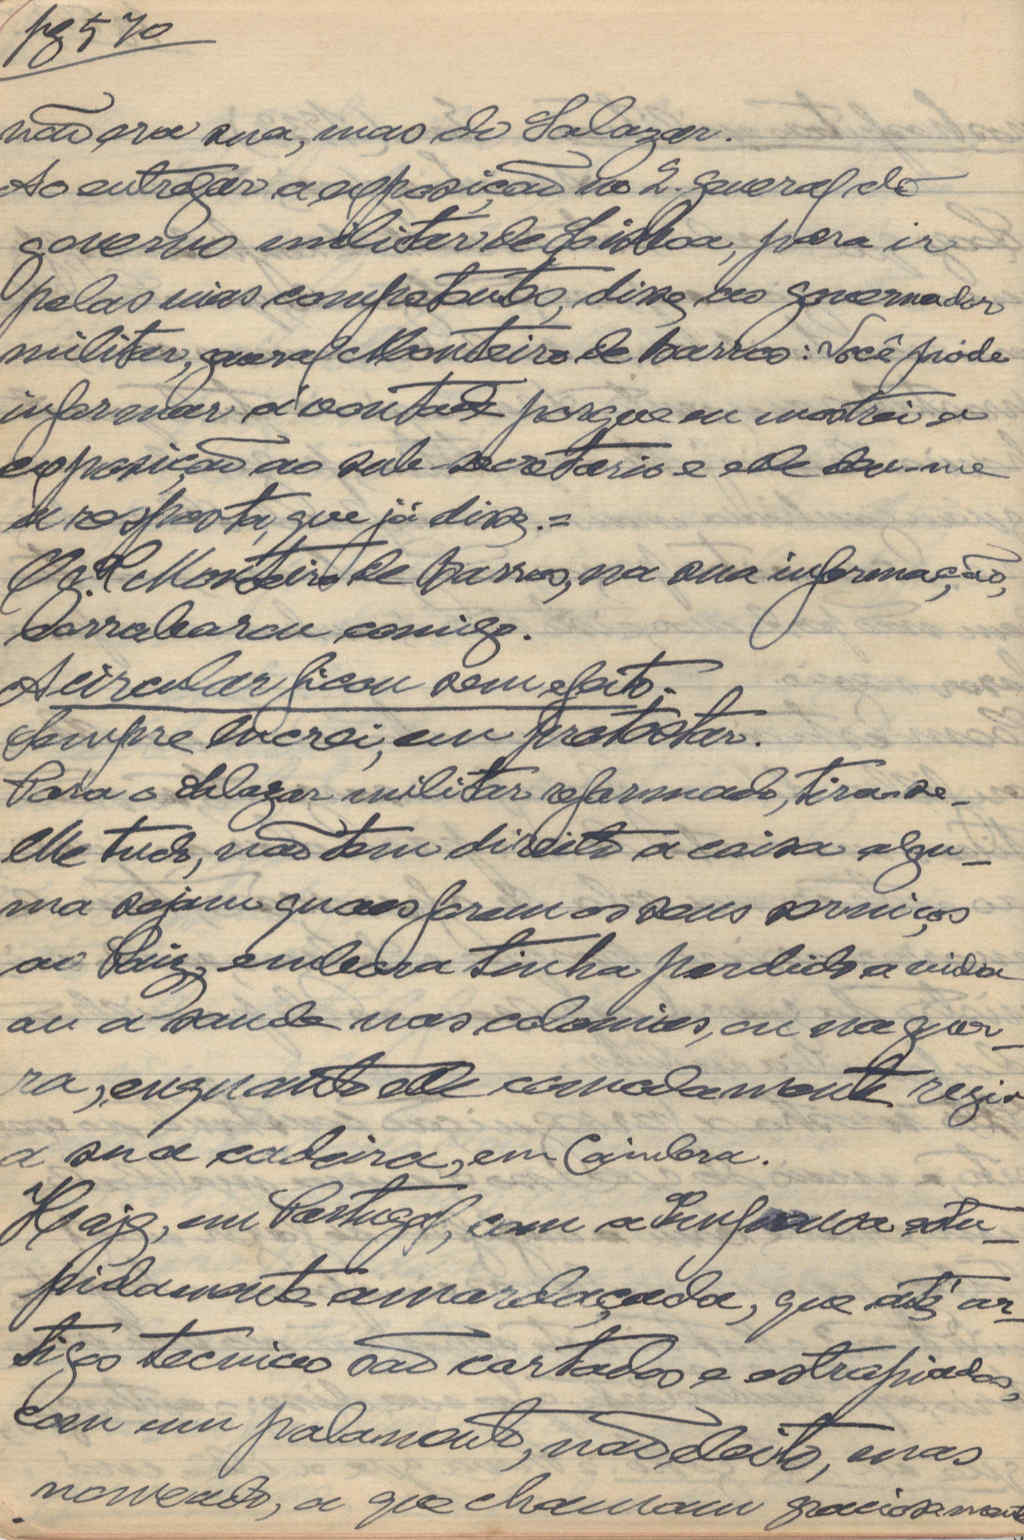 pg 570
não era sua, mas do Salazar.
Ao entregar a exposição no Q. general do
governo militar de Lisboa, para ir
pelas vias competentes, disse ao governador
militar, general Monteiro de barros: Você pode
informar á vontade porque eu mostrei a
exposição ao sub-secretario e elle deu-me
a resposta, que já disse.=
O Monteiro de barros, na sua informação,
corroborou comigo.
A circular ficou sem efeito.
Sempre lucrei, em protestar.
Para o Salazar militar reformado, tira-se-
lhe tudo, não tem direito a coisa algu-
ma sejam quaes forem os seus serviços
ao Paiz, embora tinha perdido a vida
ou a saude nas colonias, ou na guer-
ra, enquanto elle comodamente regia
a sua cadeira, em Coimbra.
Hoje, em Portugal, com a Imprensa estu-
pidamente amordaçada, que até ar-
tigos tecnicos são cortados e estropiados,
com um palamento, não eleito, mas
nomeado, a que chamam graciosamente